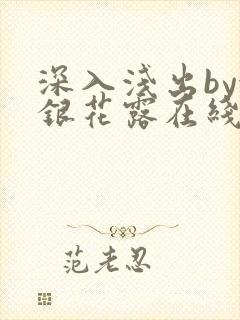 深入浅出by
銀花露在綫
范老忍